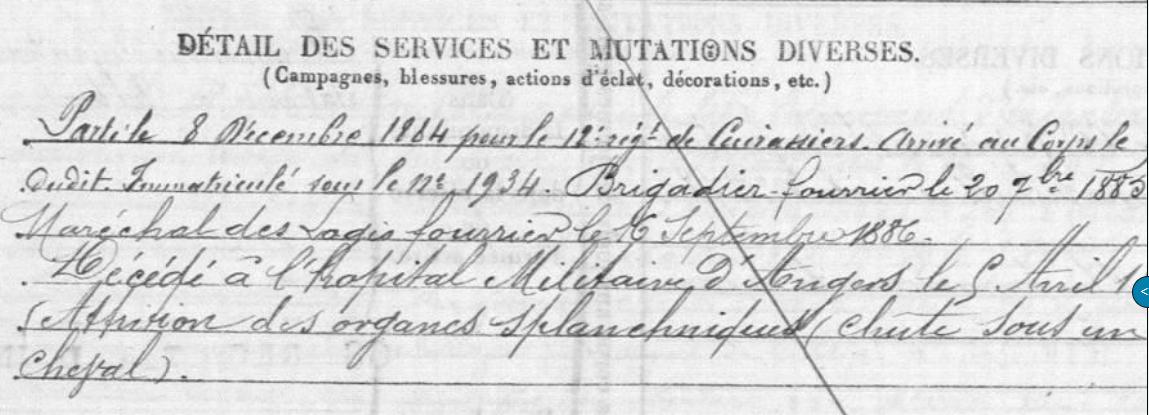 DÉTAIL DES SERVICES ET MUTATIONS DIVERSES.
(Campagnes, blessures, actions d'éclat, décorations, etc.)
Parti le 8 Décembre 1884 pour le 12e régt de Cuirassiers. Arrivé au Corps le
dudit. Immatriculé sous le no 1934. Brigadier-fourrier le 20 7bre 1885
Maréchal des Logis fourrier le 16 Septembre 1886.
Décédé à l'hopital Militaire d'Angers le 5 Avril
( des organes splanchniques (chute sous un
cheval).